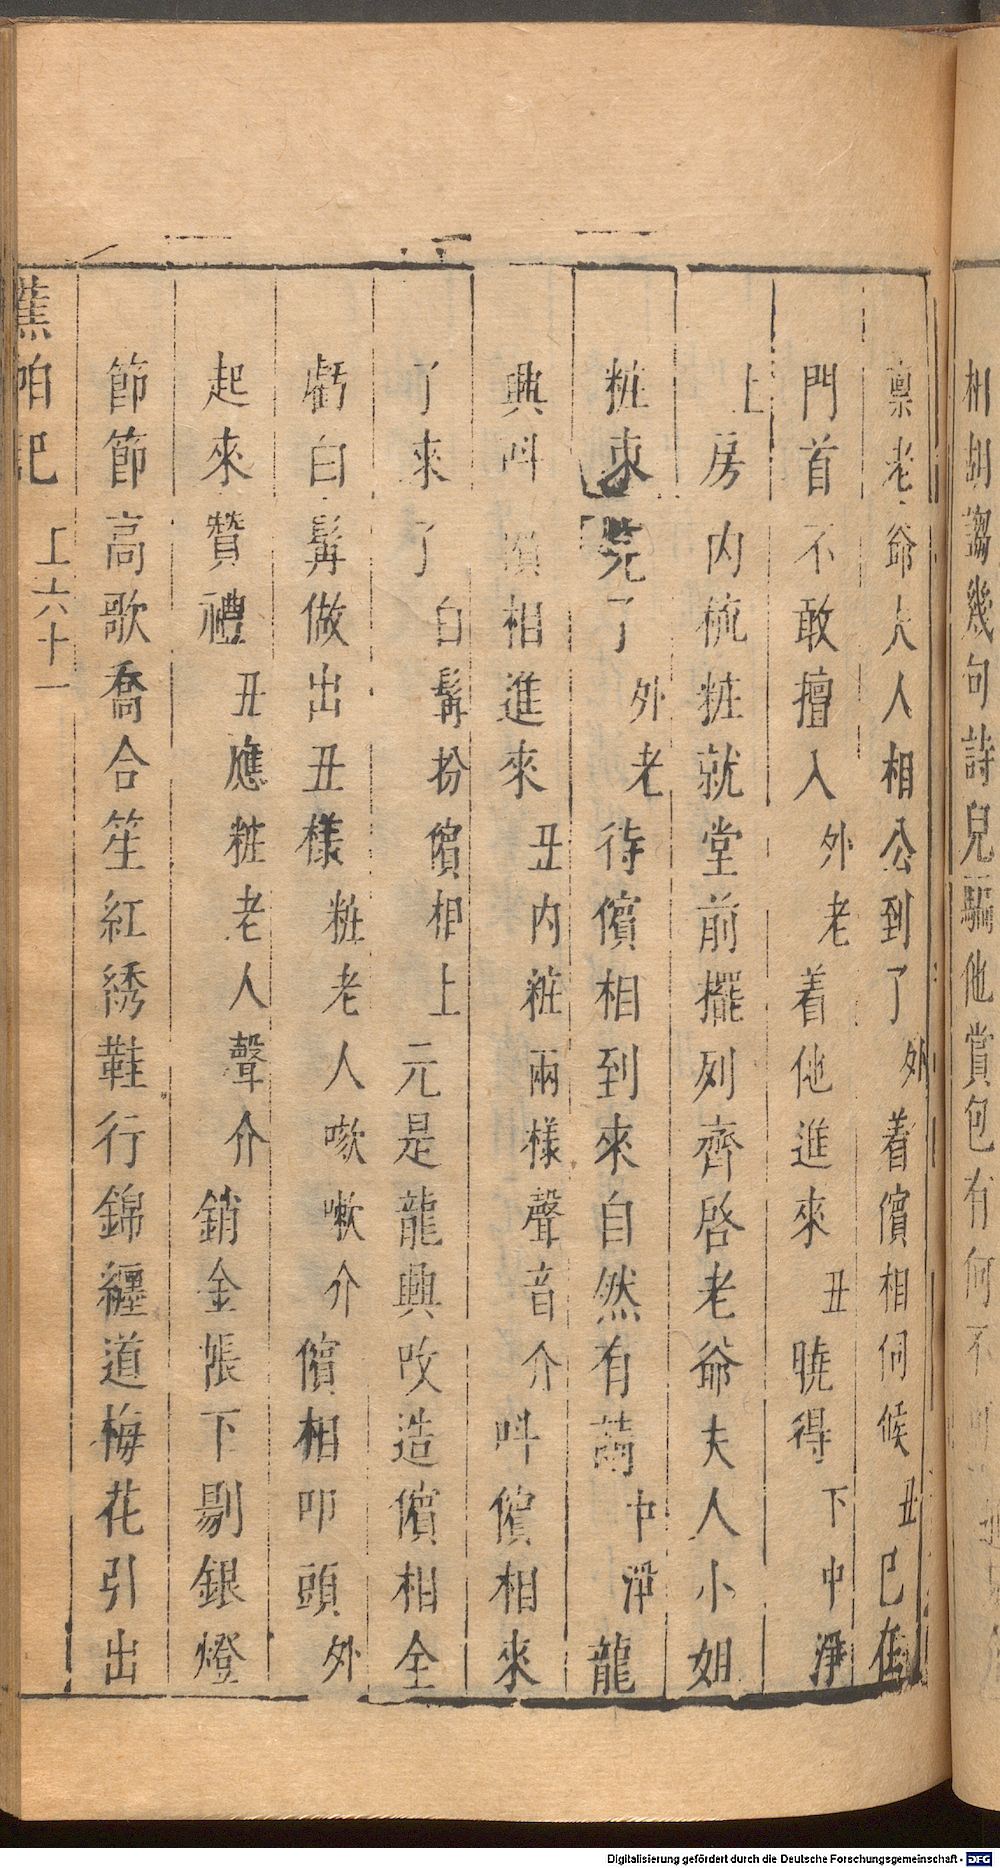 相胡謅幾句詩兒騙他賞包有何不
稟老爺夫人相公到了外着儐相伺候丑已在
門首不敢擅入外老着他進來丑曉得下中淨
上房內梳粧就堂前擺列齊啓老爺夫人小姐
粧束完了外老待儐相到來自然有賞中淨龍
興叫儐相進來丑內粧兩樣聲音介叫儐相來
了來了白髯扮儐相上元是龍興改造儐相全
虧白髯做出丑樣粧老人嗽嗽介儐相叩頭外
起來贊禮丑應粧老人聲介銷金帳下剔銀燈
節節高歌喬合笙紅綉鞋行錦纏道梅花引出
蕉帕記
上六十一
Digitalisierung gefördert durch die Deutsche Forschungsgemeinschaft - DFG